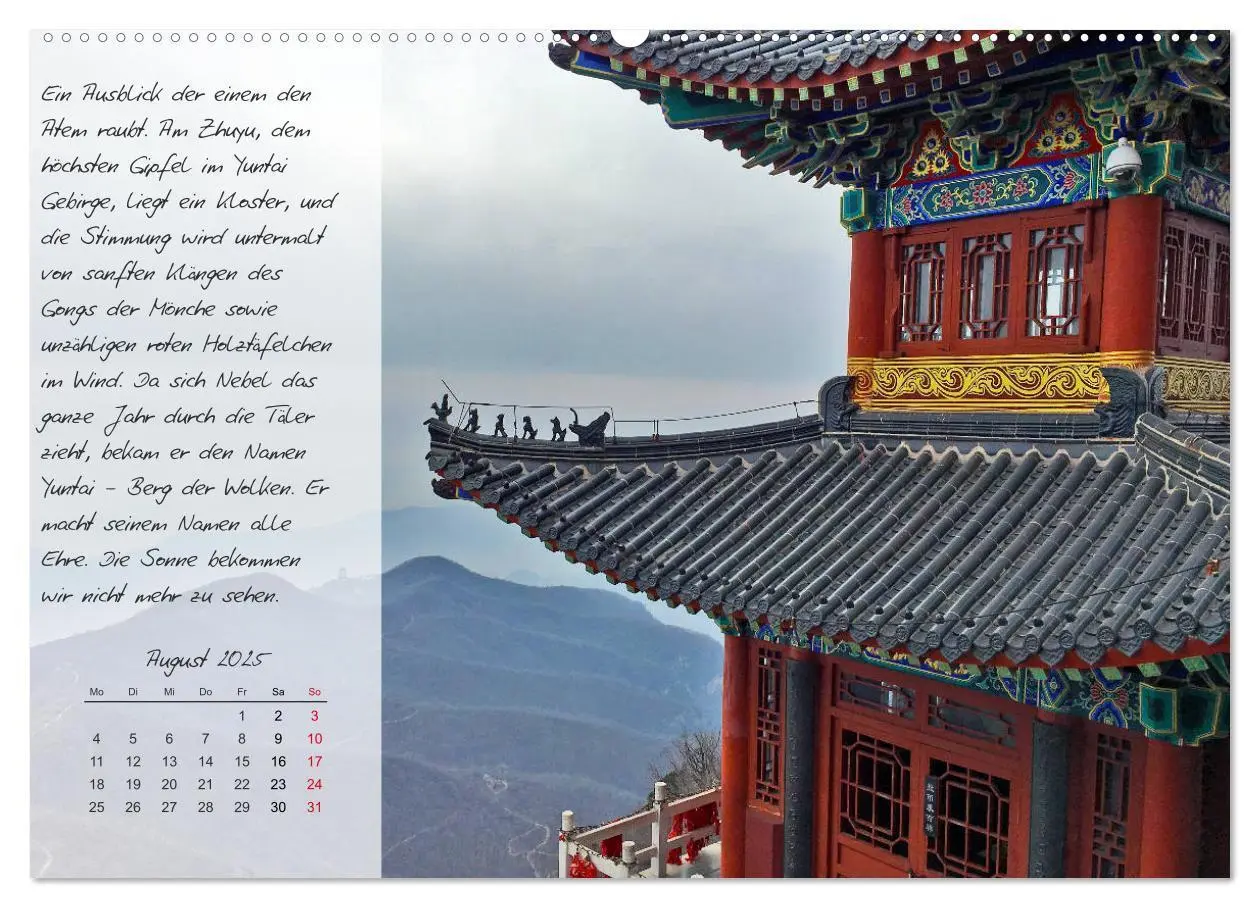 Ein Ausblick der einem den
Atem raubt. Am Zhuyu, dem
höchsten Gipfel im Yuntai
Gebirge, liegt ein Kloster, und
die Stimmung wird untermalt
von sanften Klängen des
Gongs der Mönche sowie
unzähligen roten Holztäfelchen
im Wind. Da sich Nebel das
ganze Jahr durch die Täler
zieht, bekam er den Namen
Yuntai - Berg der Wolken. Er
macht seinem Namen alle
Ehre. Die Sonne bekommen
wir nicht mehr zu sehen.
August 2025
Mo Di Mi Do Fr Sa So
1 2 3
4 5 6 7 8 9 10
11 12 13 14 15 16 17
18 19 20 21 22 23 24
25 26 27 28 29 30 31